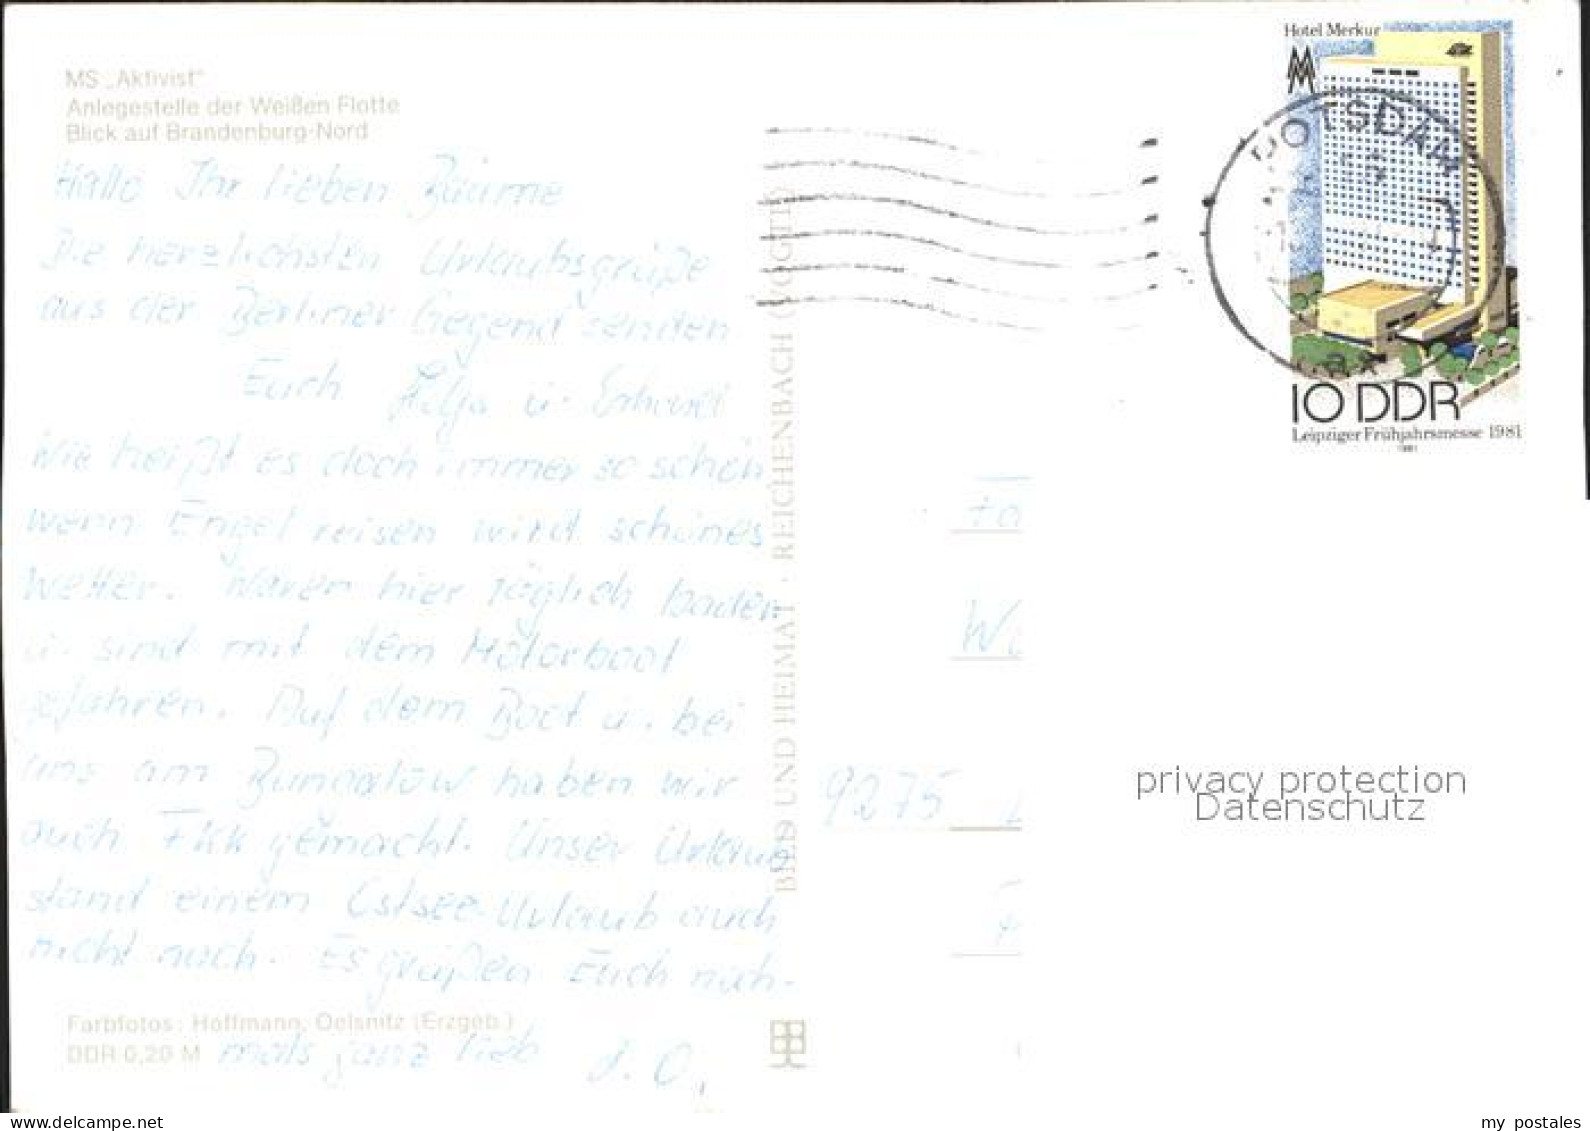 MS „Aktivist“
Anlegestelle der Weißen Flotte
Blick auf Brandenburg-Nord
Hallo Ihr lieben Bäume
Die herzlichsten Urlaubsgrüße
aus der Berliner Gegend senden
Euch Helga u.
Wie heißt es doch immer so schön
wenn Engel reisen wird schönes
Wetter. Waren hier täglich baden
u. sind mit dem Motorboot
gefahren. Auf dem Boot u. bei
uns am Bungalow haben wir
auch FKK gemacht. Unser Urlaub
stand einem Ostsee-Urlaub auch
nicht nach. Es grüßen Euch noch-
mals ganz lieb d. O.
Farbfotos: Hoffmann, Oelsnitz (Erzgeb.)
DDR 0,20 M
BILD UND HEIMAT · REICHENBACH (VOGTL)
Hotel Merkur
MM
POTSDAM
10 DDR
Leipziger Frühjahrsmesse 1981
1981
Fa
W
9275 L
privacy protection
Datenschutz
my postales